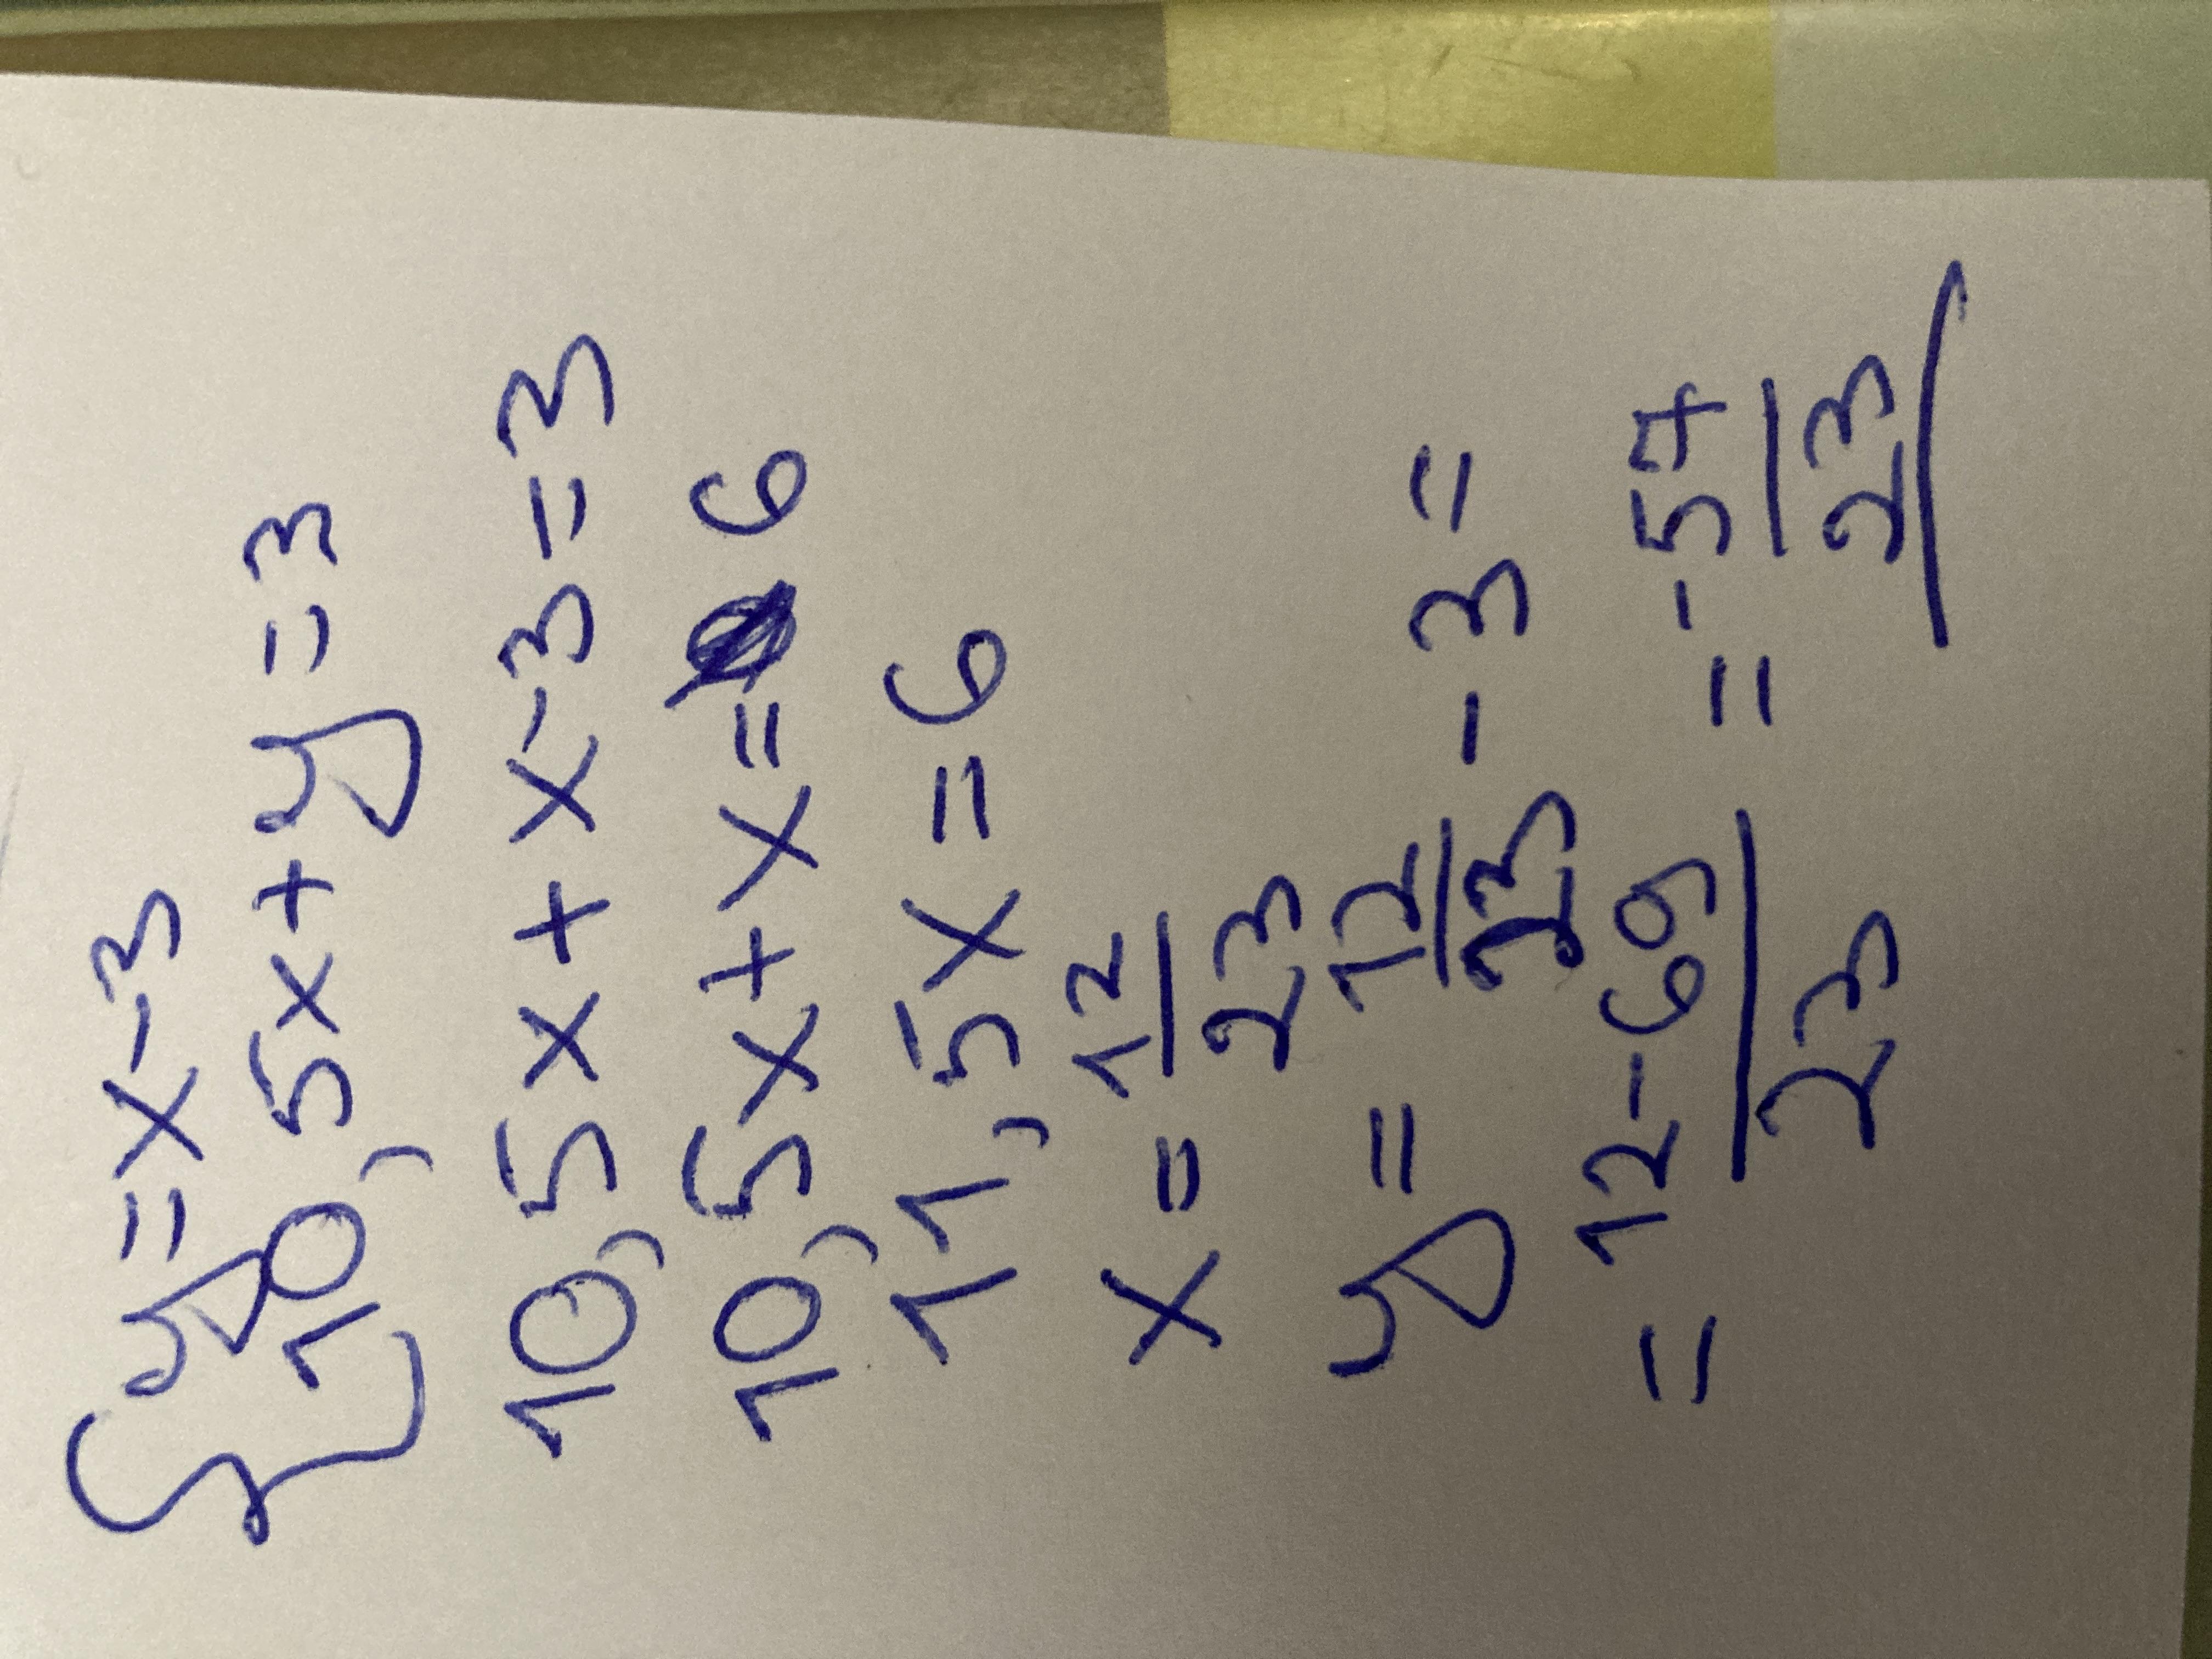 { y = x - 3
10,5x + y = 3
10,5x + x - 3 = 3
10,5x + x = 6
11,5x = 6
x = 12/23
y = 12/23 - 3 =
= 12 - 69/23 = -57/23